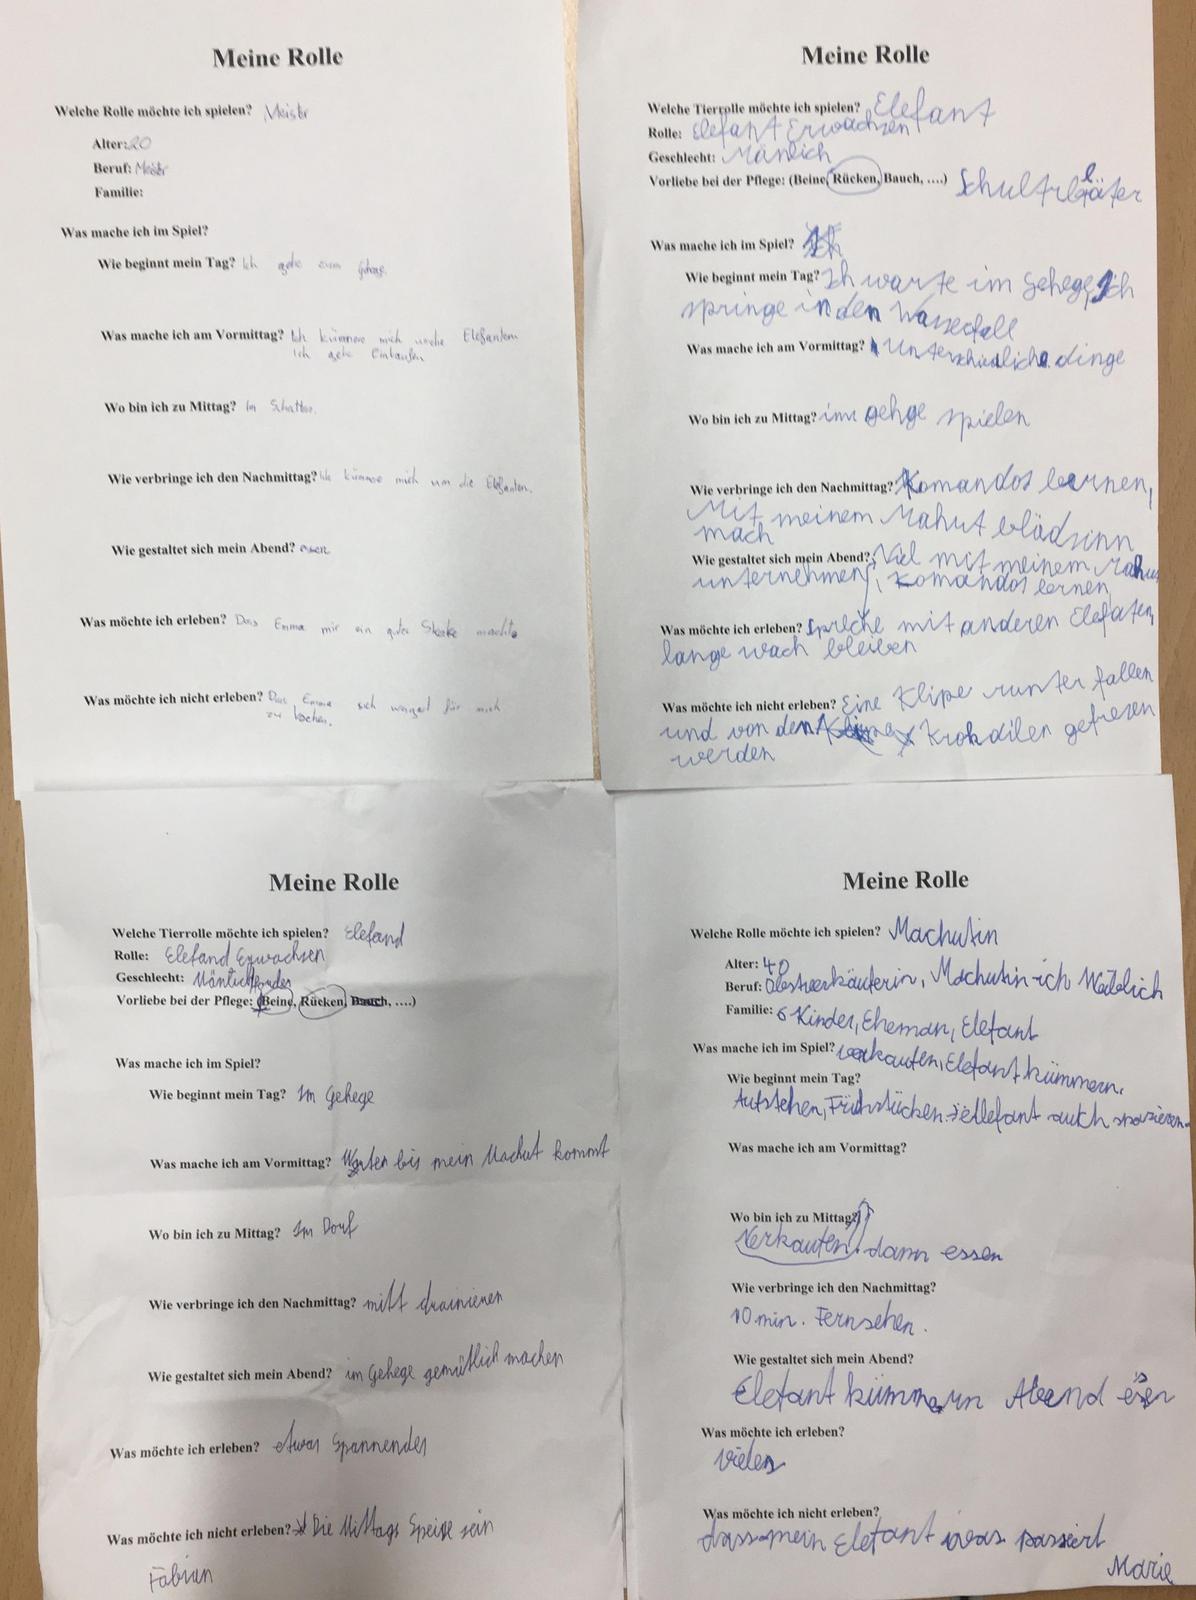 Meine Rolle
Welche Rolle möchte ich spielen? Meister
Alter: 20
Beruf: Meister
Familie:
Was mache ich im Spiel?
Wie beginnt mein Tag? Ich gehe zum Gehege.
Was mache ich am Vormittag? Ich kümmere mich um die Elefanten
Ich gehe Einkaufen
Wo bin ich zu Mittag? Im Schatten.
Wie verbringe ich den Nachmittag? Ich kümmere mich um die Elefanten.
Wie gestaltet sich mein Abend? essen
Was möchte ich erleben? Das Emma mir ein gutes Steake machte
Was möchte ich nicht erleben? Das Emma sich weigert für mich
zu kochen.
Meine Rolle
Welche Tierrolle möchte ich spielen? Elefant
Rolle: Elefant Erwachsen
Geschlecht: Mänlich
Vorliebe bei der Pflege: (Beine, Rücken, Bauch, ....) Schultrbläter
Was mache ich im Spiel? Ich
Wie beginnt mein Tag? Ich warte im Gehege, Ich
springe in den Wasserfall
Was mache ich am Vormittag? Unterschiedliche dinge
Wo bin ich zu Mittag? im gehge spielen
Wie verbringe ich den Nachmittag? Komandos lernen,
Mit meinem Mahut blödsinn
mach
Wie gestaltet sich mein Abend? Viel mit meinem Mahut
unternehmen, Komandos lernen
Was möchte ich erleben? Spreche mit anderen Elefaten,
lange wach bleiben
Was möchte ich nicht erleben? Eine Klipe runter fallen
und von den Krokdilen gefresen
werden
Meine Rolle
Welche Tierrolle möchte ich spielen? Elefand
Rolle: Elefand Erwachsen
Geschlecht: Mäntlich
Vorliebe bei der Pflege: (Beine, Rücken, Bauch, ....)
Was mache ich im Spiel?
Wie beginnt mein Tag? Im Gehege
Was mache ich am Vormittag? Warten bis mein Machut kommt
Wo bin ich zu Mittag? Im Dorf
Wie verbringe ich den Nachmittag? mitt drainieren
Wie gestaltet sich mein Abend? im Gehege gemütlich machen
Was möchte ich erleben? etwas Spannendes
Was möchte ich nicht erleben? Die Mittags Speise sein
Fabian
Meine Rolle
Welche Rolle möchte ich spielen? Machutin
Alter: 40
Beruf: Obstverkäuferin, Machutin-ich Weiblich
Familie: 6 Kinder, Eheman, Elefant
Was mache ich im Spiel? verkaufen, Elefant kümmern.
Wie beginnt mein Tag?
Aufstehen, Frühstücken. Ellefant auch spazieren
Was mache ich am Vormittag?
Wo bin ich zu Mittag?
Verkaufen. dann essen
Wie verbringe ich den Nachmittag?
10 min. Fernsehen.
Wie gestaltet sich mein Abend?
Elefant kümmern Abend essen
Was möchte ich erleben?
vieles
Was möchte ich nicht erleben?
dass mein Elefant was passiert
Marie